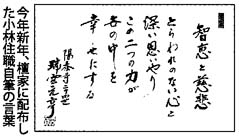 智恵と慈悲
とらわれのない心と
深い思いやり
この二つの力が
世の中を
幸せにする
今年新年、檀家に配布し
た小林住職自筆の言葉